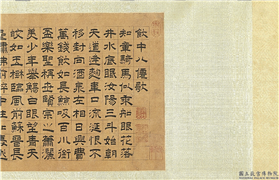 飲中八僊歌
知章騎馬似乘船眼花落
井水底眠汝陽三斗始朝
天道逢麴車口流涎恨不
移封向酒泉左相日興費
萬錢飲如長鯨吸百川銜
盃樂聖稱賢宗之蕭灑
美少年舉觴白眼望青天
皎如玉樹臨風前蘇晉長
齋繡佛前醉中往往愛
國立故宮博物院